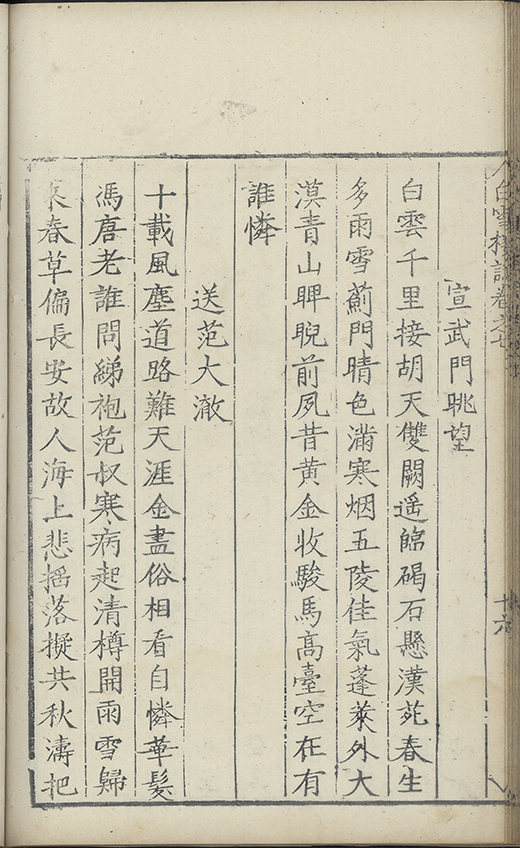 白雪樓詩卷之
十六
宣武門眺望
白雲千里接胡天雙闕遥臨碣石懸漢苑春生
多雨雪薊門晴色滿寒烟五陵佳氣蓬萊外大
漠青山睥睨前夙昔黄金收駿馬髙臺空在有
誰憐
送范大澈
十載風塵道路難天涯金盡俗相看自憐華髮
馮唐老誰問綈袍范叔寒病起清樽開雨雪歸
來春草偏長安故人海上悲揺落擬共秋濤把